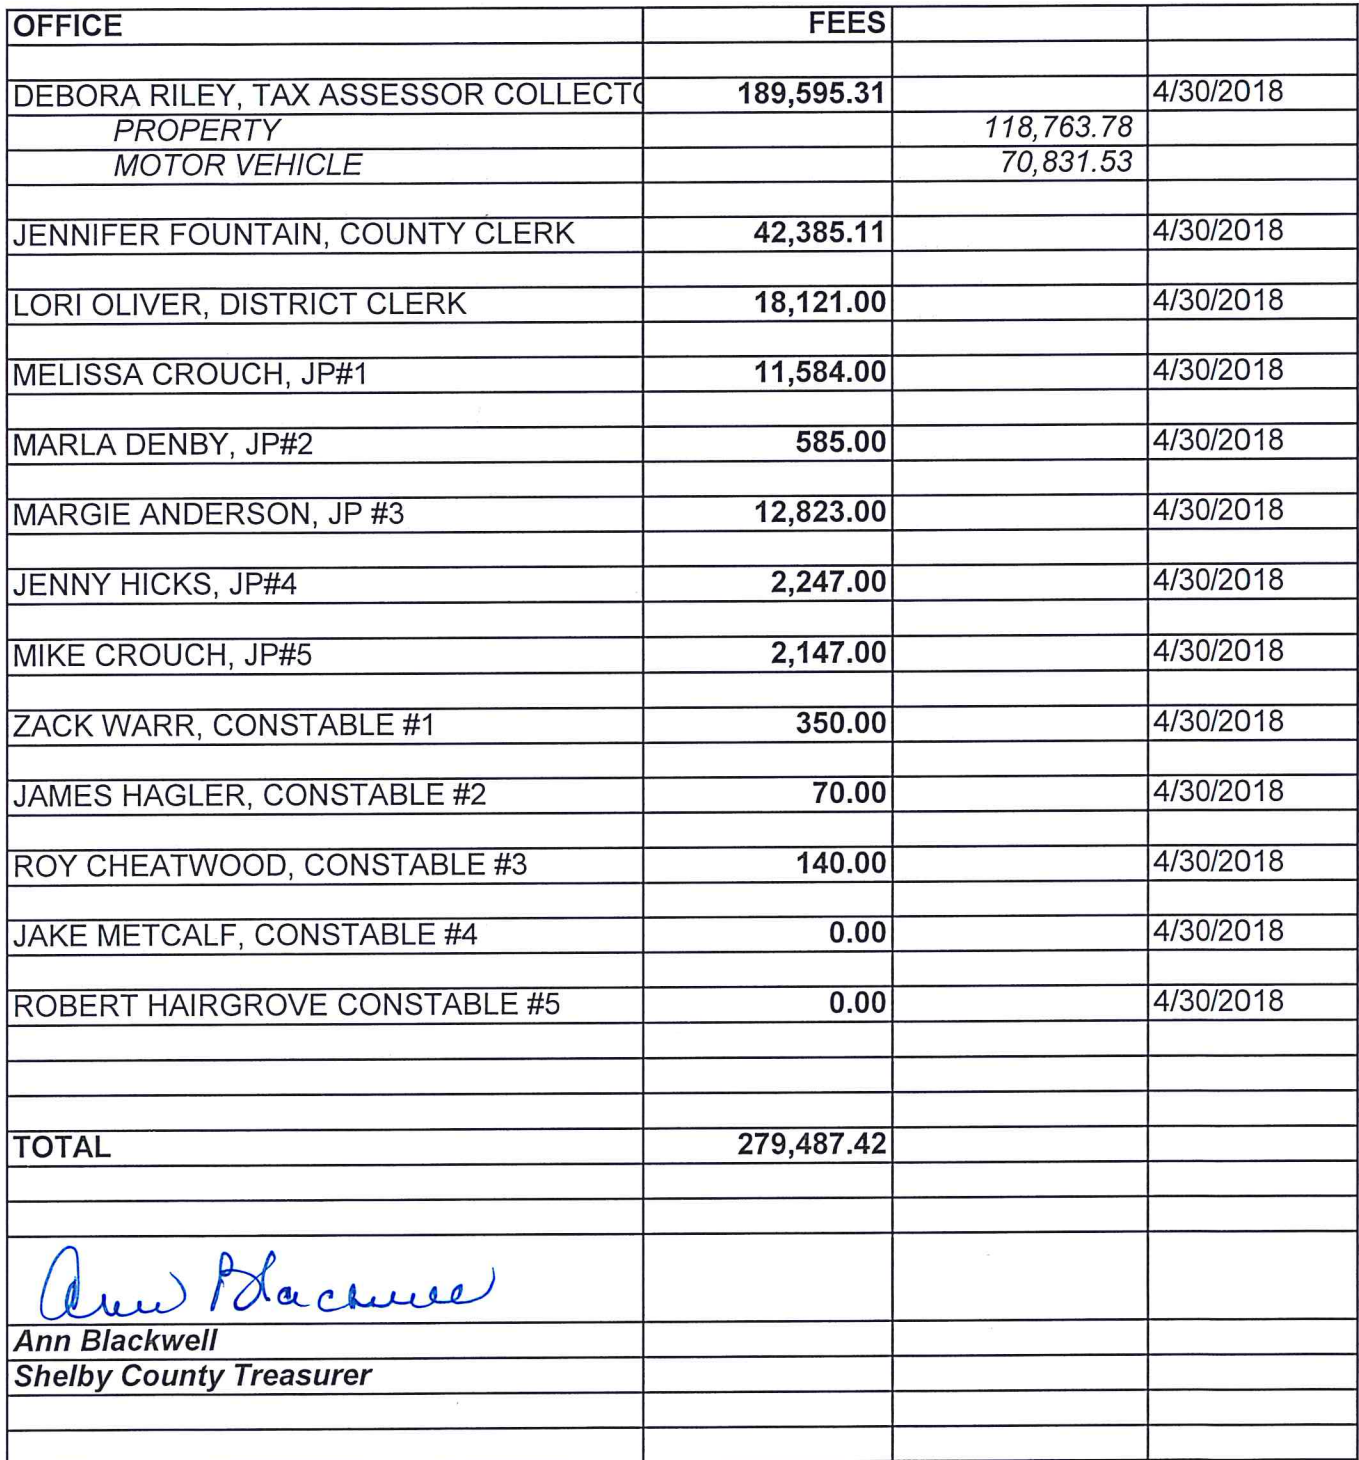 OFFICE FEES
DEBORA RILEY, TAX ASSESSOR COLLECTO 189,595.31 4/30/2018
PROPERTY 118,763.78
MOTOR VEHICLE 70,831.53
JENNIFER FOUNTAIN, COUNTY CLERK 42,385.11 4/30/2018
LORI OLIVER, DISTRICT CLERK 18,121.00 4/30/2018
MELISSA CROUCH, JP#1 11,584.00 4/30/2018
MARLA DENBY, JP#2 585.00 4/30/2018
MARGIE ANDERSON, JP #3 12,823.00 4/30/2018
JENNY HICKS, JP#4 2,247.00 4/30/2018
MIKE CROUCH, JP#5 2,147.00 4/30/2018
ZACK WARR, CONSTABLE #1 350.00 4/30/2018
JAMES HAGLER, CONSTABLE #2 70.00 4/30/2018
ROY CHEATWOOD, CONSTABLE #3 140.00 4/30/2018
JAKE METCALF, CONSTABLE #4 0.00 4/30/2018
ROBERT HAIRGROVE CONSTABLE #5 0.00 4/30/2018
TOTAL 279,487.42
Ann Blackwell
Ann Blackwell
Shelby County Treasurer